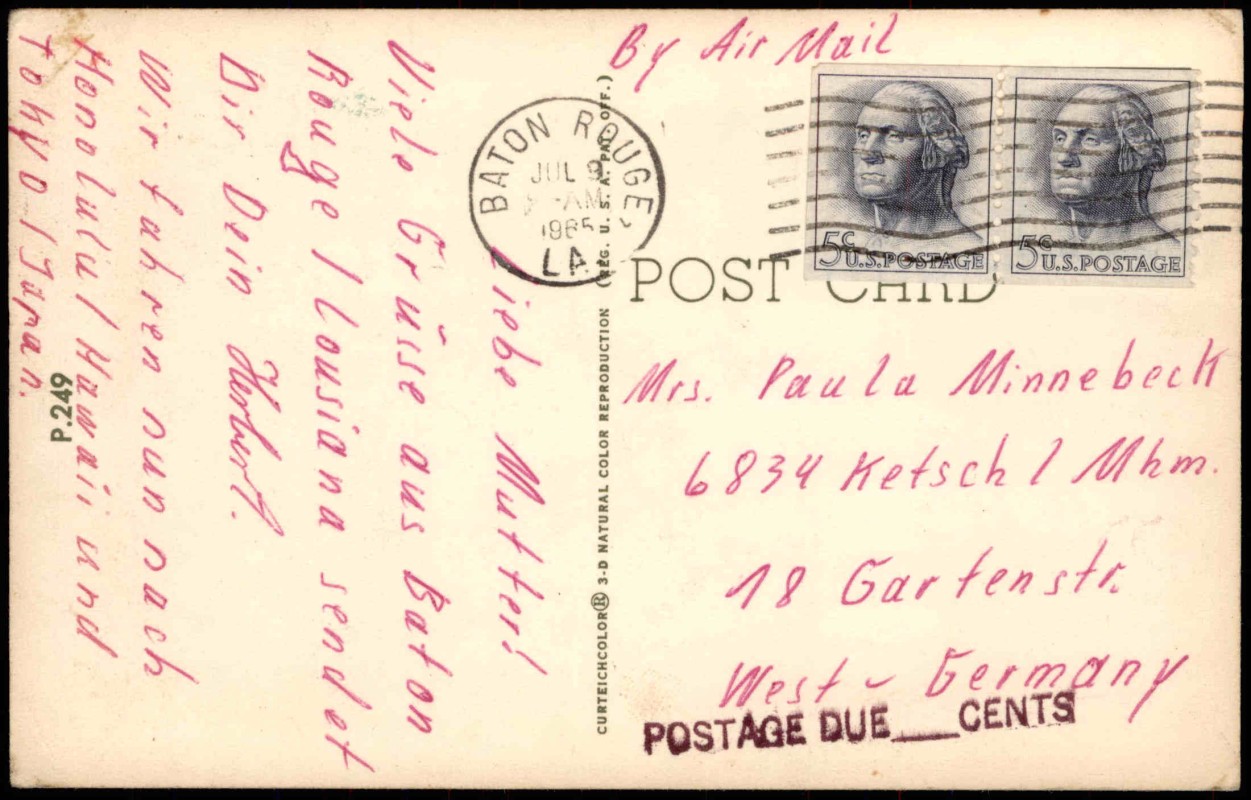 By Air Mail
BATON ROUGE
JUL 9
AM
1965
LA.
5c U.S.POSTAGE
5c U.S.POSTAGE
POST CARD
Mrs. Paula Minnebeck
6834 Ketsch / Mhm.
18 Gartenstr.
West - Germany
POSTAGE DUE___CENTS
CURTEICHCOLOR® 3-D NATURAL COLOR REPRODUCTION (REG. U. S. A. PAT. OFF.)
Liebe Mutter!
Viele Grüsse aus Baton
Rouge / Lousiana sendet
Dir Dein Herbert.
Wir fahren nun nach
Honolulu / Hawaii und
Tokyo / Japan.
P.249